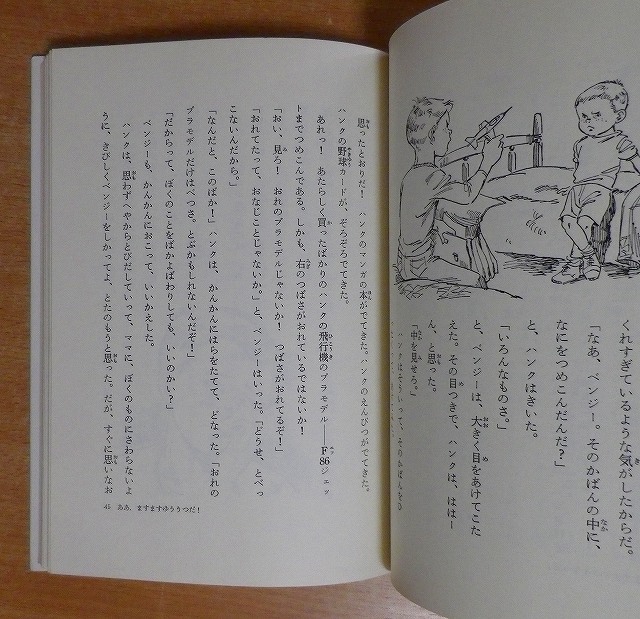 くれすぎているような気がしたからだ。
「なあ、ベンジー。そのかばんの中に、
なにをつめこんだんだ？」
と、ハンクはきいた。
「いろんなものさ。」
と、ベンジーは、大きく目をあけてこた
えた。その目つきで、ハンクは、ははー
ん、と思った。
「中を見せろ。」
ハンクはそういって、そのかばんを
思ったとおりだ！　ハンクのマンガの本がでてきた。ハンクのえんぴつがでてきた。
ハンクの野球カードが、ぞろぞろでてきた。
あれっ！　あたらしく買ったばかりのハンクの飛行機のプラモデル――F86ジェッ
トまでつめこんである。しかも、右のつばさがおれているではないか！
「おい、見ろ！　おれのプラモデルじゃないか！　つばさがおれてるぞ！」
「おれてたって、おなじことじゃないか。」と、ベンジーはいった。「どうせ、とべっ
こないんだから。」
「なんだと、このばか！」ハンクは、かんかんにはらをたてて、どなった。「おれの
プラモデルだけはべつさ。とぶかもしれないんだぞ！」
「だからって、ぼくのことをばかよばわりしても、いいのかい？」
ベンジーも、かんかんにおこって、いいかえした。
ハンクは、思わずへやからとびだしていって、ママに、ぼくのものにさわらないよ
うに、きびしくベンジーをしかってよ、とたのもうと思った。だが、すぐに思いなお
45 ああ、ますますゆううつだ！